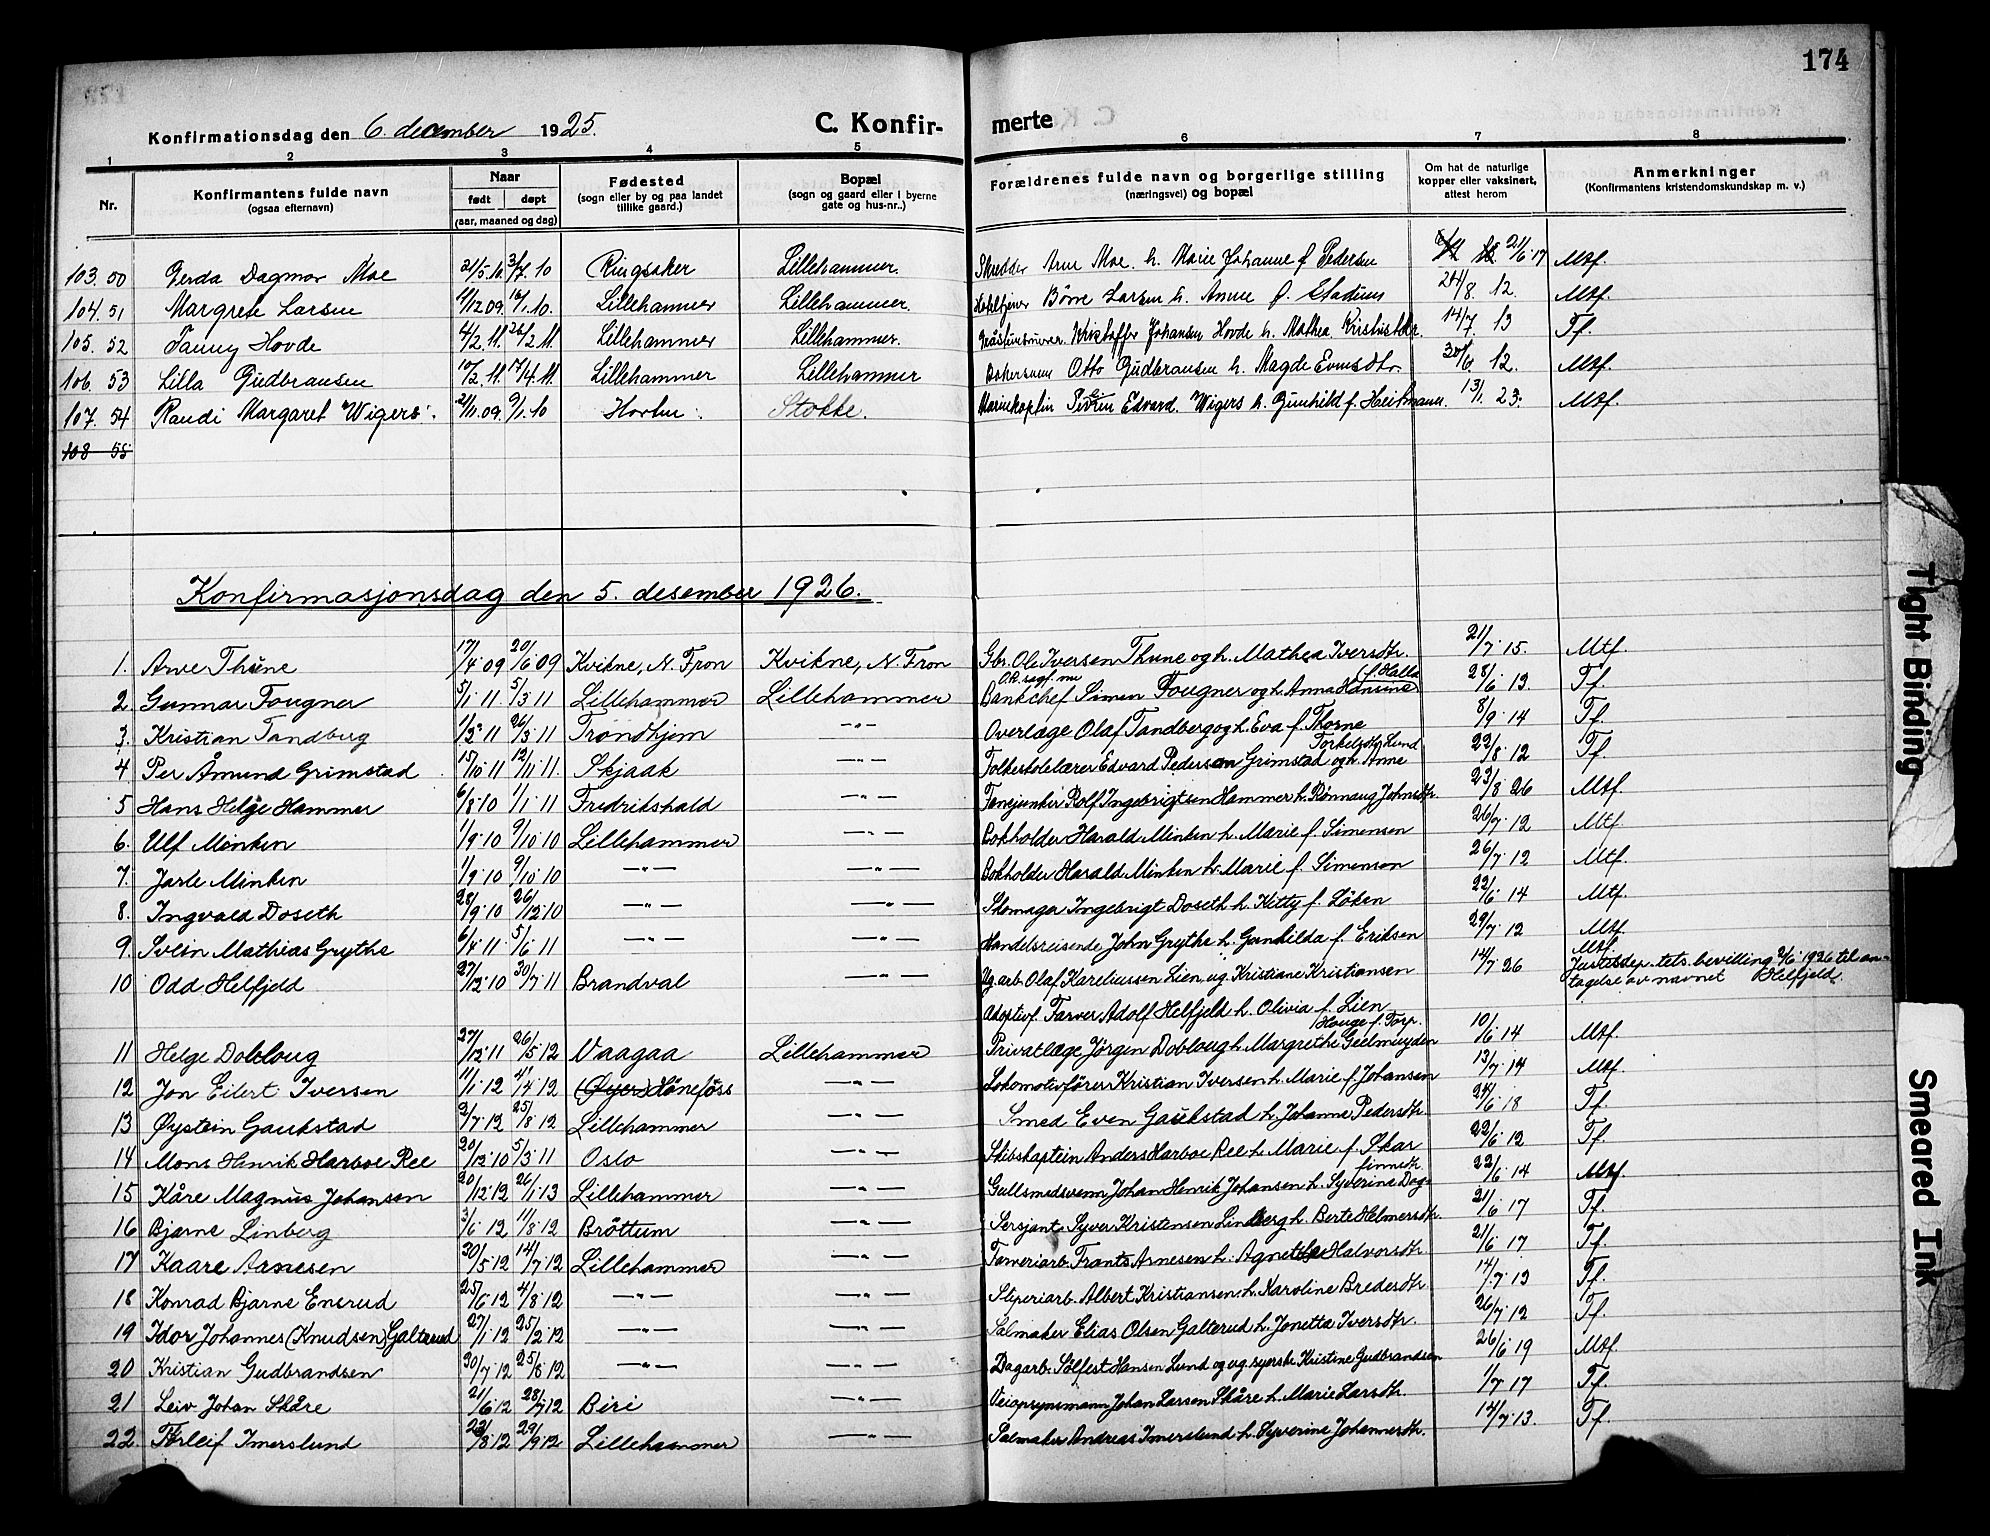 174
Konfirmationsdag den 6. december 1925. C. Konfir- merte
1 2 3 4 5 6 7 8
Nr. Konfirmantens fulde navn (ogsaa efternavn) Naar født døpt (aar, maaned og dag) Fødested (sogn eller by og paa landet tillike gaard.) Bopæl (sogn og gaard eller i byerne gate og hus-nr..) Forældrenes fulde navn og borgerlige stilling (næringsvei) og bopæl Om hat de naturlige kopper eller vaksinert, attest herom Anmerkninger (Konfirmantens kristendomskundskap m. v.)
103. 50 Gerda Dagmar Moe 21/5.10 3/7.10 Ringsaker Lillehammer. Skrædder Arne Moe. h. Marie Johanne f. Pedersen 21/6 17 Mtf.
104. 51 Margrete Larsen 11/12 09. 16/1.10. Lillehammer Lillehammer. Børre Larsen h. Anne f. 24/8. 12. Mtf.
105. 52 Fanny Hovde 4/2.11. 26/2 11. Lillehammer Lillehammer. Kristoffer Johansen Hovde h. Mathea 14/7. 13 Tf.
106. 53 Lilla Gudbransen 10/2.11. 17/4.11. Lillehammer Lillehammer Otto Gudbransen h. Magde Evensdtr. 30/6. 12. Mtf.
107. 54 Randi Margaret Wigers. 21/11.09. 9/1.10 Horten. Stokke. Marinekaptein Edvard. Wigers h. Gunhild f. Heitmann. 13/1. 23. Mtf.
108 55
Konfirmasjonsdag den 5. desember 1926.
1. Arve Thune 17/4 09 20/6 09 Kvikne, N. Fron Kvikne, N. Fron Gbr. Ole Iversen Thune og h. Mathea Iversdtr. 21/7 15. Mtf.
2. Gunnar Fougner 5/1 11. 5/3 11 Lillehammer Lillehammer Bankchef Simen Fougner og h. Anna Hansine (f. Halla 28/6 13. Tf.
3. Kristian Tandberg 11/2 11 26/3 11 Trondhjem —"— Overlæge Olaf Tandberg og h. Eva f. Thorne 8/9 14 Tf.
4 Per Åmund Grimstad 15/10 11 12/11 11. Skjaak —"— Folkeskolelærer Edvard Pedersen Grimstad og h. Anne Torkelsdtr Lund 22/8 12 Tf.
5 Hans Helge Hammer 6/8 10 1/1 11 Fredrikshald —"— Fanejunker Rolf Ingebrigtsen Hammer h. Rønnaug Johnsdtr. 23/8 26 Mtf.
6. Ulf Minken 1/9 10 9/10 10 Lillehammer —"— Bokholder Harald Minken h. Marie f. Simensen 26/7 12 Mtf.
7. Jarle Minken 1/9 10 9/10 10 —"— —"— Bokholder Harald Minken h. Marie f. Simenson 26/7 12 Mtf.
8. Ingvald Doseth 28/9 10 26/12 10 —"— —"— Skomager Ingebrigt Doseth h. Kitty f. Løken 22/6 14 Mtf.
9. Svein Mathias Grythe 6/4 11. 5/6 11 —"— —"— Handelsreisende John Grythe h. Gunhilda f. Eriksen 29/7 12 Mtf.
10 Odd Helfjeld 27/12 10 30/7 11 Brandval —"— Ug. arb. Olaf Kareliussen Lien, ug. Kristiane Kristiansen 14/7 26 Mtf. Justisdep.-tets bevilling 2/6 1926 til antagelse av navnet Helfjeld.
Adoptivf. Farver Adolf Helfjeld h. Olivia f. Lien
11 Helge Dobloug 27/12 11 26/5 12 Vaagaa Lillehammer Privatlæge Jørgen Dobloug h. Margrethe Geelmuyden Houge f. Torp. 10/6 14 Mtf.
12 Jon Eilert Iversen 11/1 12 4/4 12 (Øyer) Hönefoss —"— Lokomotivfører Kristian Iversen h. Marie f. Johansen 13/7 14 Mtf.
13 Øystein Gaukstad 2/7 12 25/8 12 Lillehammer —"— Smed Even Gaukstad h. Johanna Pedersdtr. 24/6 18 Tf.
14 Mons Henrik Harboe Ree 20/12 10 5/3 11 Oslo —"— Skibskaptein Anders Harboe Ree h. Marie f. Skar 22/6 12 Tf.
15 Kåre Magnus Johansen 20/12 12 26/1 13 Lillehammer —"— Gullsmedsvenn Johan Henrik Johansen h. Syverine Dag- finnsdtr. 22/6 14 Mtf.
16 Bjarne Linberg 3/6 12 11/8 12 Brøttum —"— Sersjant Syver Kristensen Lindberg h. Berte Helmersdtr. 21/6 17 Tf.
17 Kaare Arnesen 30/5 12 14/7 12 Lillehammer —"— Farveriarb. Frants Arnesen h. Agnethe Halvorsdtr. 21/6 17 Tf.
18 Konrad Bjarne Enerud 25/6 12 4/8 12 —"— —"— Sliperiarb. Albert Kristiansen h. Karoline Bredesdtr. 14/7 13 Tf.
19 Idor Johannes (Knudsen) Galterud 27/1 12 25/2 12 —"— —"— Salmaker Elias Olsen Galterud h. Jonetta Iversdtr. 26/7 12 Tf.
20 Kristian Gudbrandsen 30/7 12 25/8 12 —"— —"— Dagarb. Sølfest Hansen Lund og ug. syerske Kristine Gudbrandsen 26/6 19 Mtf.
21 Leiv Johan Skåre 21/6 12 28/7 12 Biri —"— Veiopsynsmann Johan Larsen Skåre h. Marie Larsdtr. 1/7 17 Tf.
22. Thorleif Imerslund 23/8 12 29/9 12 Lillehammer —"— Salmaker Andreas Imerslund h. Syverine Johannesdtr. 14/7 13. Tf.
Tight Binding
Smeared Ink